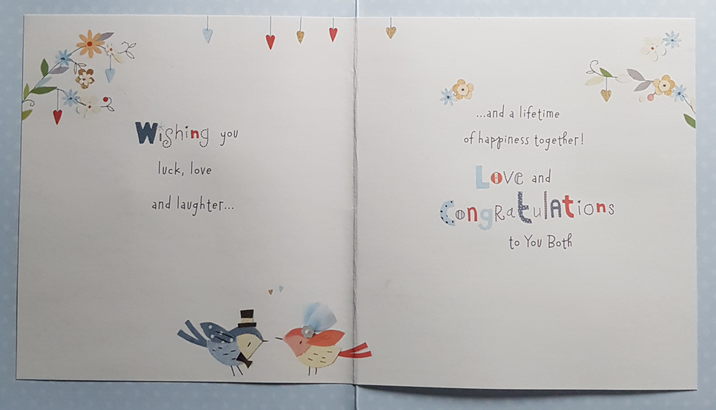 Wishing you
luck, love
and laughter...
...and a lifetime
of happiness together!
Love and
Congratulations
to You Both